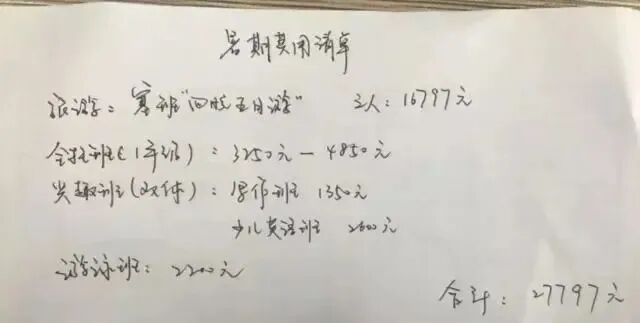 暑期费用清单
旅游：塞班"四晚五日游" 三人：16797元
全托班(1年级)：3250元—4850元
兴趣班(双休)：写作班 1350元
少儿英语班 2600元
游泳班：2200元
合计：27797元